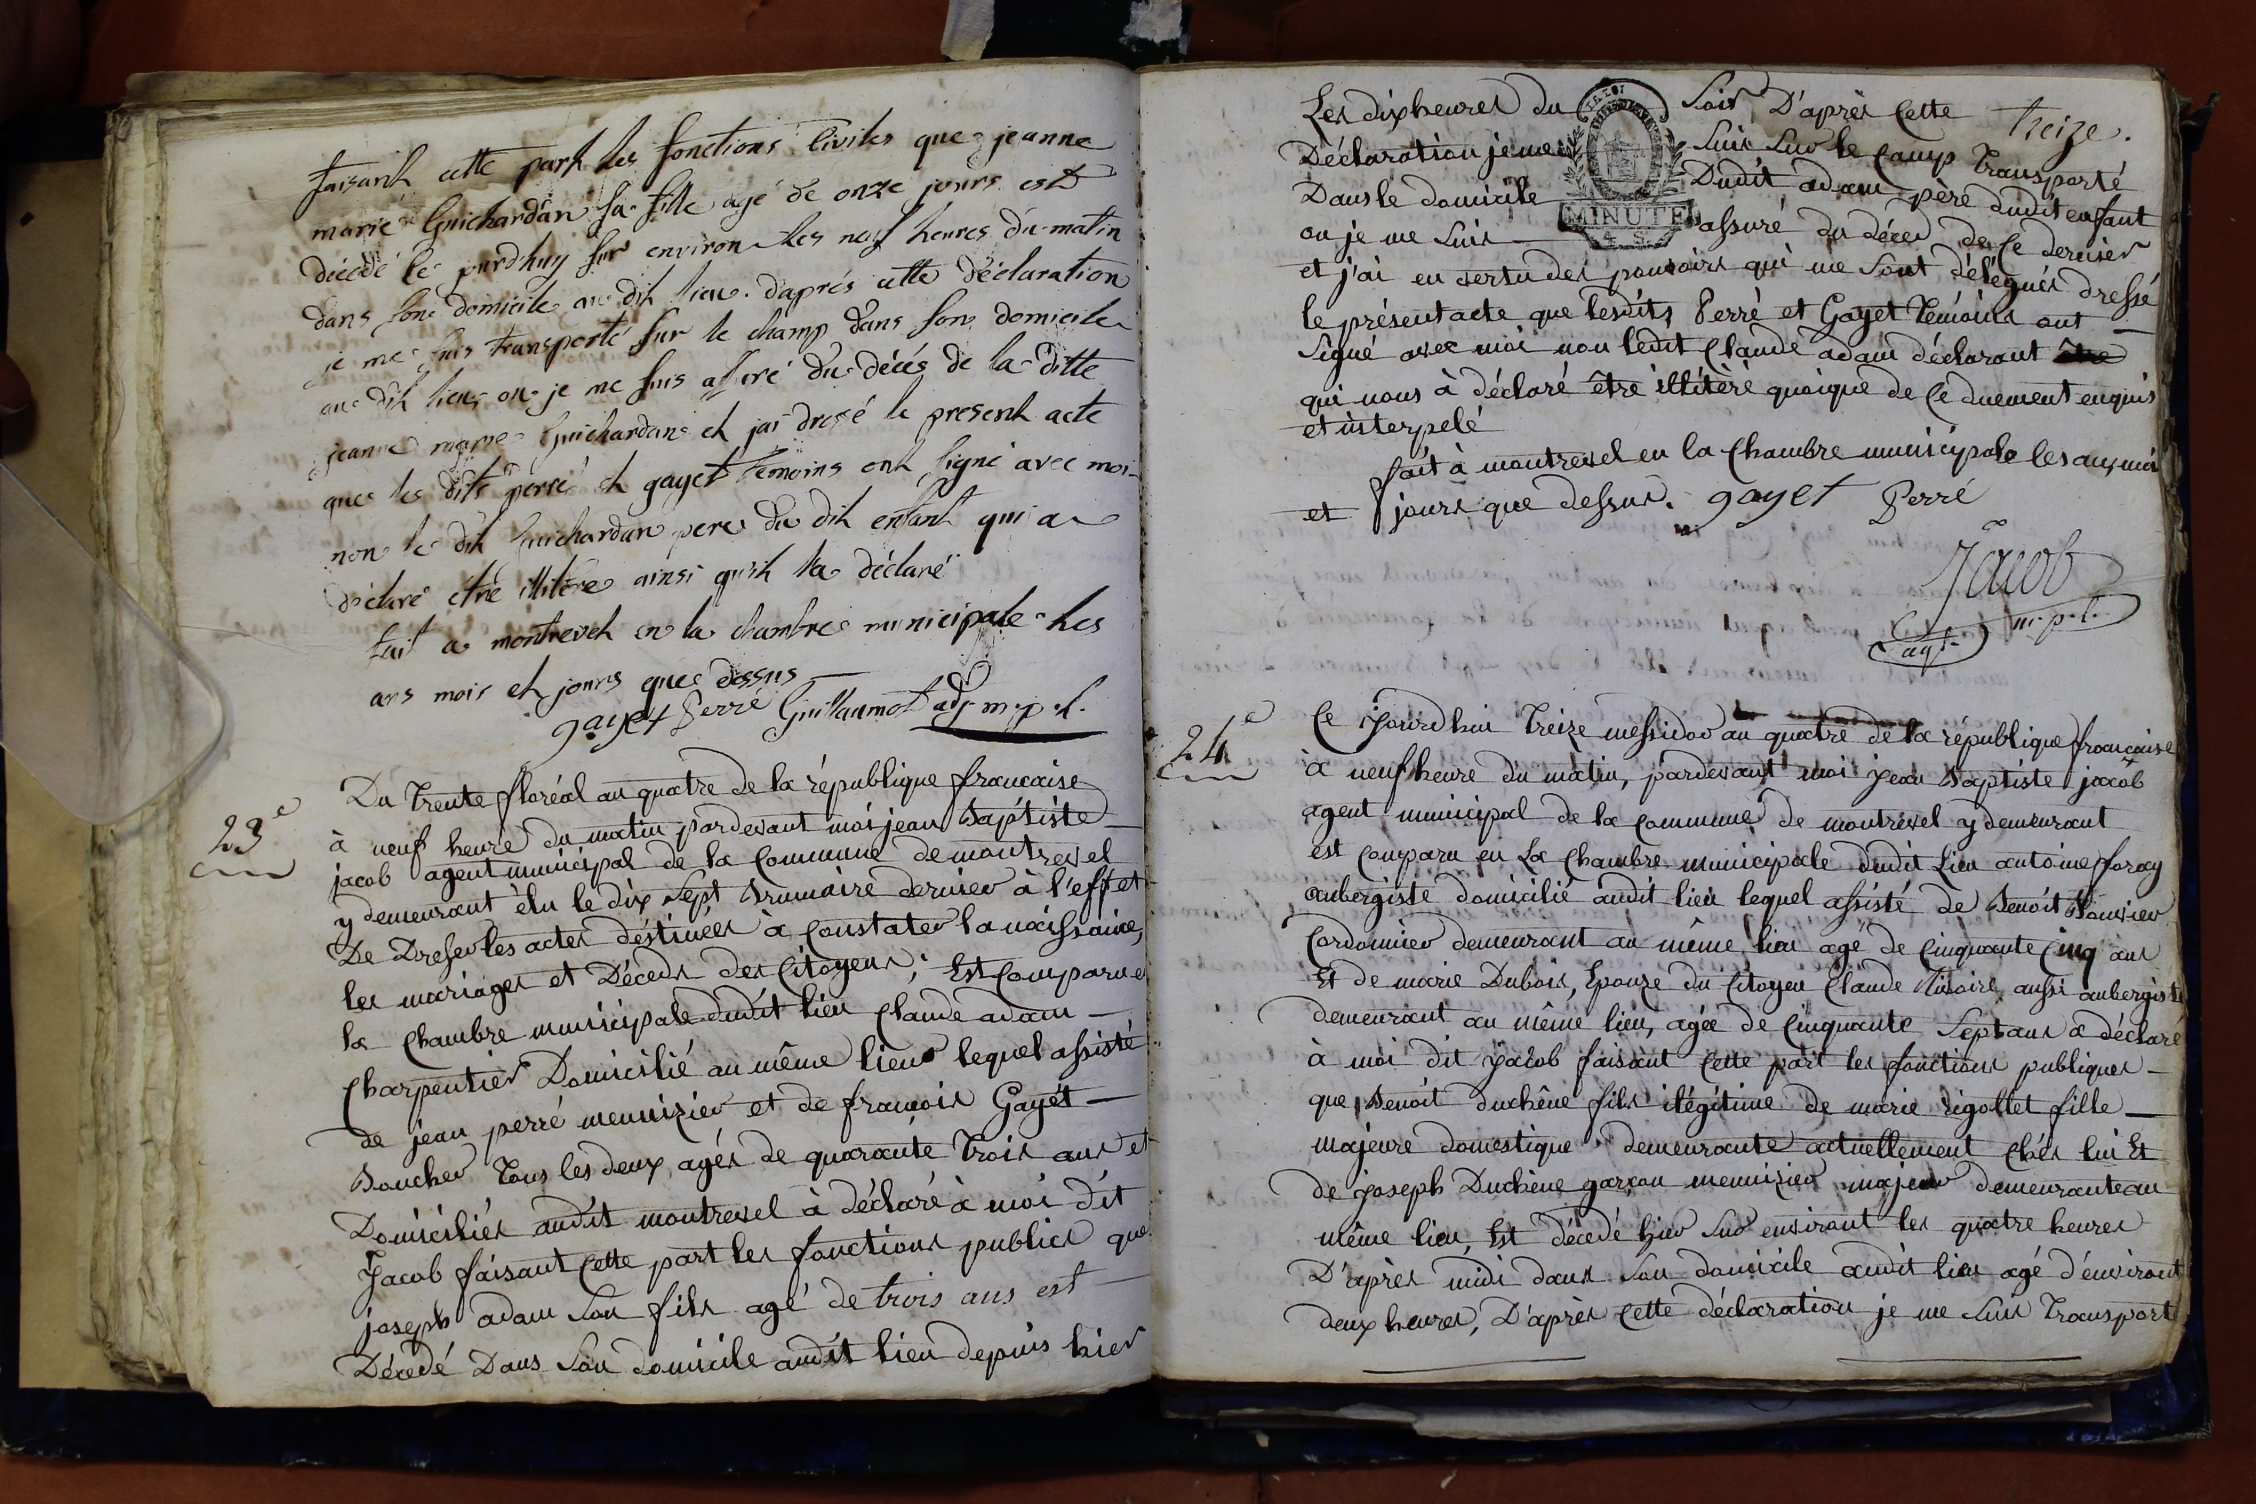 faisant cette part les fonctions Civiles que jeanne
marie Guichardan sa fille agé de onze jours est
décédé ce jourdhuy sur environ les neuf heures du matin
dans son domicile au dit lieu. d'aprés cette déclaration
je me suis transporté sur le champ dans son domicile
au dit lieu ou je me suis assuré du décés de la ditte
jeanne marie Guichardan et jai dressé le present acte
que les dits perré et gayet temoins ont signé avec moi
non le dit Guichardan pere du dit enfant qui a
déclaré étre illitére ainsi quil la déclaré
fait a montrevel en la chambre municipale les
ans mois et jours que dessus
gayet Perré Guillaumot adj. m.p.l.
23e
Du trente floréal an quatre de la république francaise
à neuf heure du matin pardevant moi jean Baptiste
jacob agent municipal de la Commune de montrevel
y demeurant élu le dix Sept Brumaire dernier à l'effet
De Dresser les actes déstinées à Constater la naissance,
les mariages et Décede des Citoyens; Est Comparu en
la Chambre municipale dudit lieu Claude adam
Charpentier Domicilié au même lieu lequel assisté
de jean perré menuizier et de francois Gayét
Boucher tous les deux agés de quarante trois ans et
Domiciliés audit montrevel à déclaré à moi dit
Jacob faisant Cette part les fonctions publics que
joseph adam Son fils agé de trois ans est
Décedé Dans Son domicile audit lieu depuis hier
treize.
Les dix heures du Soir D'après Cette
Déclaration je me Suis Sur le Camp transporté
Dans le domicile Dudit adam père dudit enfant
MINUTE
ou je me Suis assuré du déced de Ce dernier
et j'ai en vertu des pouvoirs qui me Sont délégués dressé
le présent acte que lesdits Perré et Gayet témoins ont
Signé avec moi non ledit Claude adam déclarant être
qui nous à déclaré être illitéré quoique de Ce duement enquis
et interpelé
fait à montrevel en la Chambre municipale les an, mois
et jours que dessus. gayet Perré
Jacob
agt. m.p.l.
24e
Ce Jourdhui treize messidor an quatre de la république francaise
à neuf heure du matin, pardevant moi jean Baptiste jacob
agent municipal de la Commune de montrevel y demeurant
est Comparu en La Chambre municipale dudit Lieu antoine foray
aubergiste domicilié audit lieu lequel assisté de Benoit
Cordonnier demeurant au même lieu agé de Cinquante Cinq ans
Et de marie Dubois, Epouze du Citoyen Claude aussi aubergiste
demeurant au même lieu, agée de Cinquante Sept ans a déclaré
à moi dit Jacob faisant Cette part les fonctions publiques
que Benoit duchêne fils ilégitime de marie rigollet fille
majeure domestique demeurante actuellement chés lui Et
de Joseph Duchêne garçon menuizier majeur demeurante au
même lieu, Est décedé hier Sur environt les quatre heures
D'aprés midi dans Son domicile audit lieu agé d'environt
deux heures, D'aprés Cette déclaration je me Suis transporté